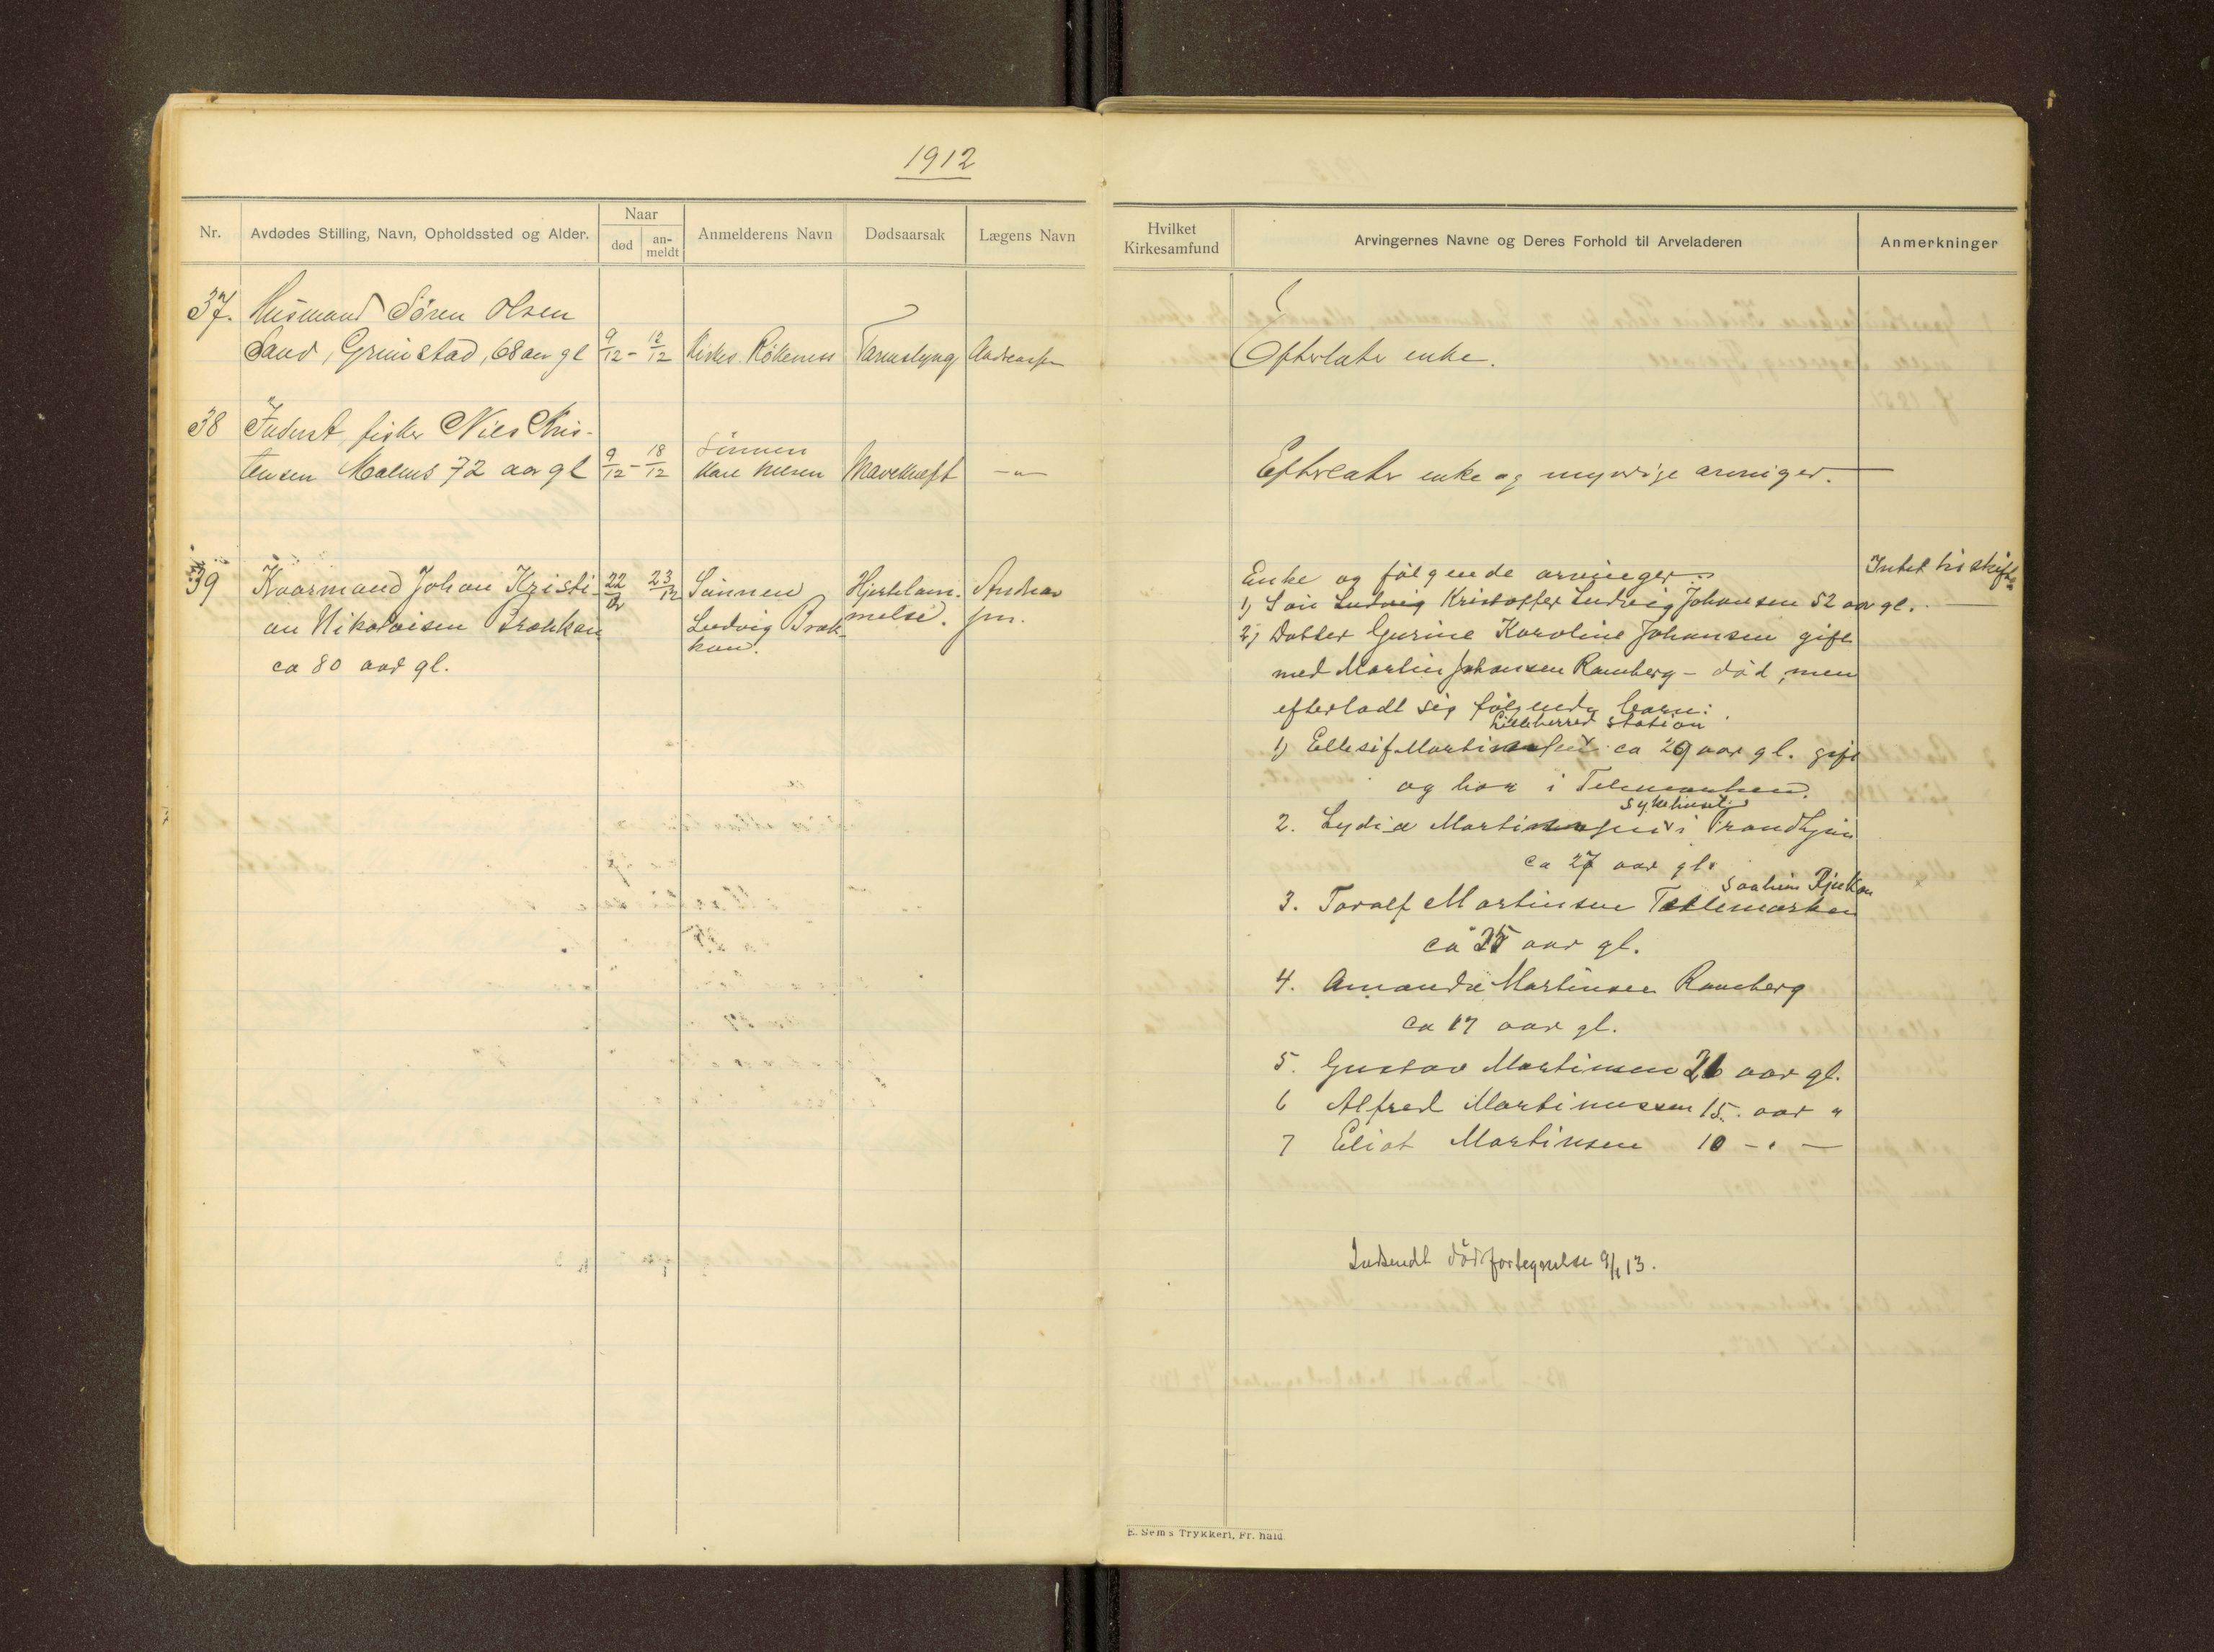 1912
Nr.
Avdødes Stilling, Navn, Opholdssted og Alder.
Naar
død
an-
meldt
Anmelderens Navn
Dødsaarsak
Lægens Navn
Hvilket
Kirkesamfund
Arvingernes Navne og Deres Forhold til Arveladeren
Anmerkninger
37. Husmand Søren Olsen
Sand, Grimstad, 68 aar gl 9/12 - 12/12 Kirkes. Røkenes Tarmslyng Andreassen
Efterlater enke.
38 Inderst, fisker Nils Kris-
tensen Malnes 72 aar gl 9/12 - 18/12
Sønnen
Kare Nilsen Mavekræft -"-
Efterlater enke og myndige arvinger.
39 Kaarmand Johan Kristi-
an Nikolaisen Brokkan
ca 80 aar gl.
22/12 23/12
Sønnen
Ludvig Brok-
kan.
Hjertelam-
melse.
Andreas
sen.
Enke og følgende arvinger:
Intet til skifte
1) Søn Ludvig Kristoffer Ludvig Johansen 52 aar gl.
2) Datter Gurine Karoline Johansen gift
med Martin Johansen Ramberg - død, men
efterladt sig følgende barn:
Lilleherred station
1) Ellesif Martinsen ca 29 aar gl. gift
og bor i Telemarken.
sykehuset
2. Lydia Martinsen i Trondhjem
ca 27 aar gl.
Saaheim Rjukan
3. Toralf Martinsen Tellemarken
ca 25 aar gl.
4. Amanda Martinsen Ramberg
ca 17 aar gl.
5. Gustav Martinsen 21 aar gl.
6 Alfred Martinussen 15. aar "
7 Eliot Martinsen 10 - " -
Indsendt dødsfortegnelse 9/1 13.
E. Sem's Trykkeri, Fr.hald